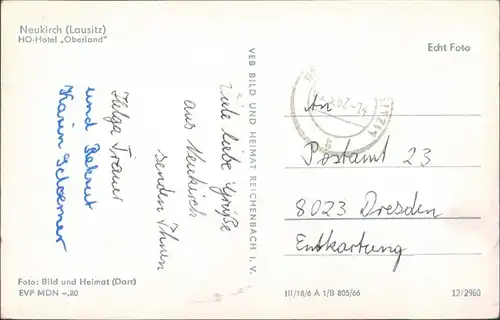 Neukirch (Lausitz)
HO-Hotel „Oberland"
Echt Foto
VEB BILD UND HEIMAT REICHENBACH I. V.
Viele liebe Grüße
aus Neukirch
senden Ihnen
Helga
und
Karin
An
Postamt 23
8023 Dresden
Entkartung
Foto: Bild und Heimat (Darr)
EVP MDN –,20
III/18/6 A 1/B 805/66
12/2960